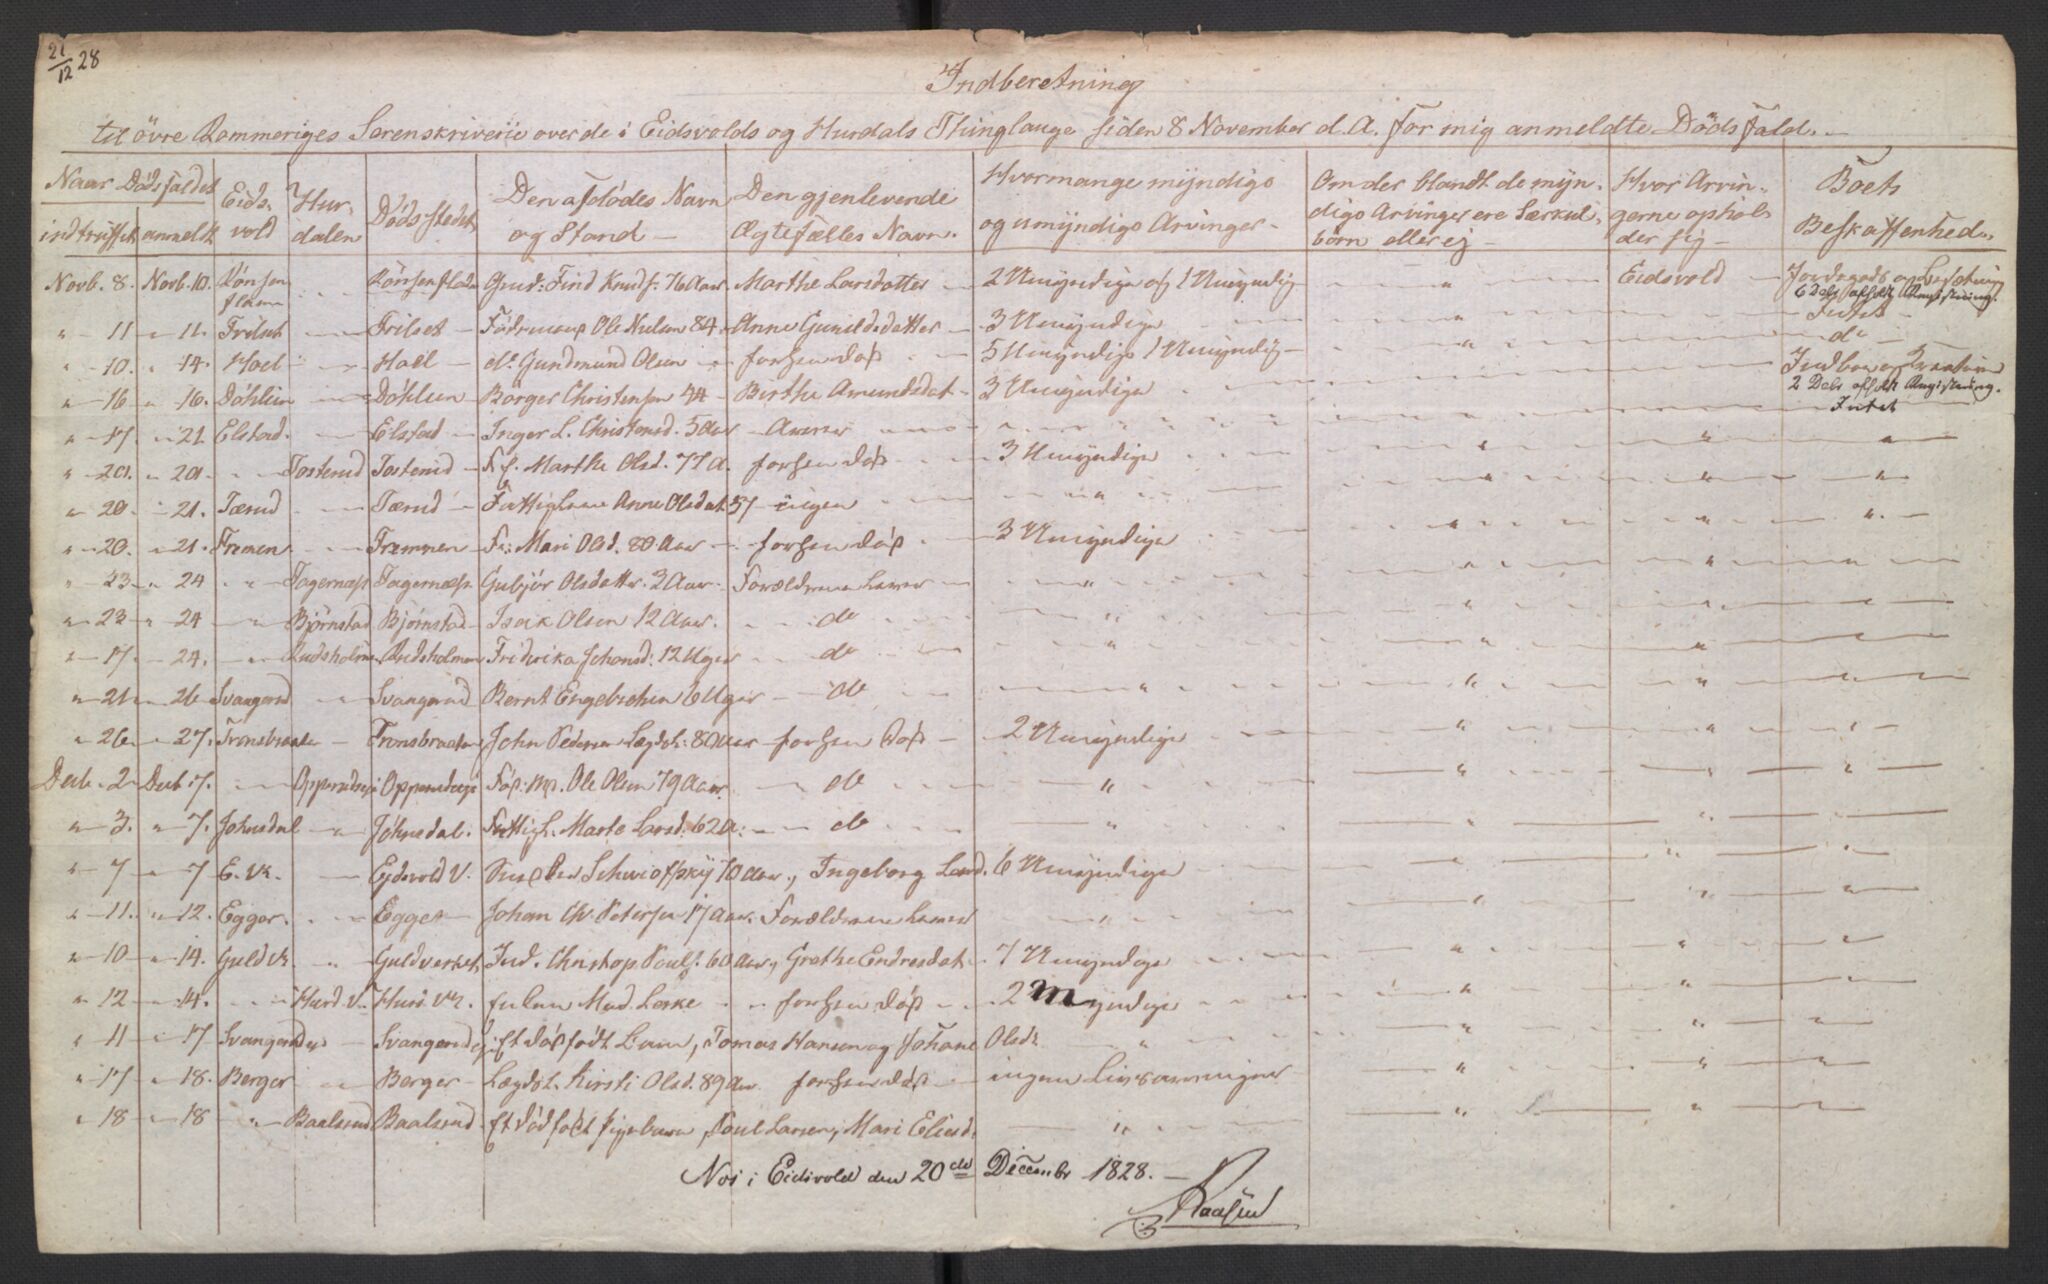 21/12 28
Indberetning
til övre Rommeriges Sorenskriverie over de i Eidsvolds og Hurdals Thinglauge siden 8 November d. A. for mig anmeldte Dödsfald.
Naar Dödsfaldet
indtruffet anmeldt
Eidsvold
Hurdalen
Dödsstedet
Den afdödes Navn og Stand
Den gjenlevende Ægtefælles Navn.
Hvormange myndige og umyndige Arvinger
Om der blandt de myndige Arvinger ere Særkulbörn eller ej
Hvor Arvingerne opholder sig
Boets Beskaffenhed
Novb. 8. Novb. 10. Find Knuds: 76 Aar. Marthe Larsdatter 2 Umyndige og 1 Umyndig " Eidsvold
" 11 " 11. Trilset Trilset Ole Nielsen 84 Anne Gunildsdatter 3 Umyndige " Intet
" 10. " 14. Hoel Hoel do Gundmund Olsen forhen död 5 Umyndige 1 Umyndig " do
" 16 " 16. Döhlen Döhlen Börger Christensen 44 Berthe Amundsdat. 3 Umyndige
2 Debr afholdt Registrering.
" 17. " 21. Elstad. Elstad Inger L. Christensd. 5 Aar " " Intet
" 20. " 20. Tosterud Tosterud Marthe Olsd. 77 A. forhen död 3 Umyndige " " "
" 20 " 21. Tærud Tærud Anne Olsdat. 57 ingen " " "
" 20. " 21. Fremen Fremmen Mari Olsd. 80 Aar forhen död 3 Umyndige " " "
" 23 " 24 Tagernæs Tagernæs Gubjör Olsdatter 3 Aar. Forældrene " "
" 23 " 24 Björnstad Björnstad Isak Olsen 12 Aar. do " " "
" 17. " 24. Rudsholm Rudsholmen Friderika Johansd: 12 Uger do " " "
" 21 " 26 Svangerud Svangerud Bernt Engebretsen 6 Uger do " " "
" 26. " 27. Tronsbraaten Tronsbraaten John Pedersen Lægdsl: 80 Aar forhen död 2 Umyndige " " "
Decb. 2 Decb 7. Ole Olsen 79 Aar. do " " " "
" 3. " 7. Johnsdal Johnsdal. Fattigl. Marte Larsd. 62 A: do " " " "
" 7 " 7 E. Vk. Ejdsvold V. 70 Aar, Ingeborg Larsd. 6 Umyndige " " "
" 11. " 12. Egger. Egget Johan Chr. Petersen 17 Aar. Forældrene " " "
" 10 " 14. Guld Vk Guldverket Ind. Christop. Pouls. 60 Aar, Grethe Endresdat. 7 Umyndige " " "
" 12 " 14. Hurd V. Hurd. Vk. Mad. Leske forhen död 2 Myndige " " "
" 11 " 17 Svangerud Svangerud Et dödfödt Barn, Tomas Hansen og Johane Olsd. " " " "
" 17 " 18. Berger Berger Lægdsl. Kirsti Olsd. 89 Aar forhen död ingen Livsarvinger " " "
" 18 " 18 " Baalsrud Baalsrud Et dödfödt Pigebarn, Poul Larsen, Mari Eliasd. " " " "
Noi i Eidsvold den 20de December 1828.